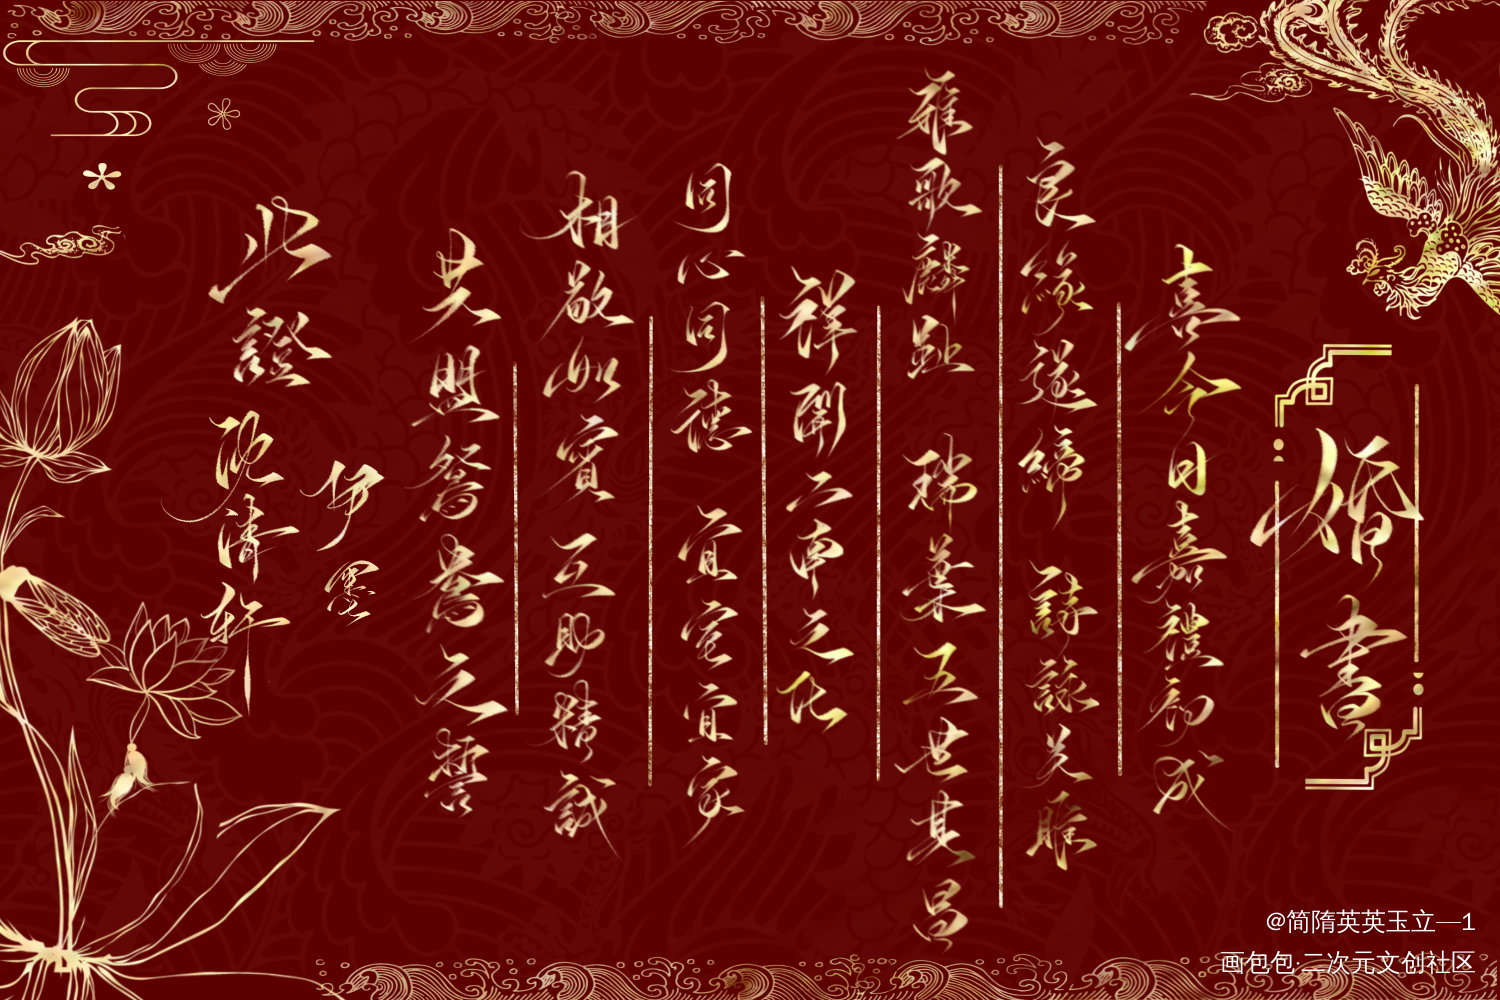 婚書
喜今日嘉禮初成
良緣遂締 詩詠关雎
雅歌麟趾 瑞葉五世其昌
祥開二南之化
同心同德 宜室宜家
相敬如賓 互助精誠
共盟鴛鴦之誓
此證
伊墨
沈清轩
@简隋英英玉立—1
画包包·二次元文创社区